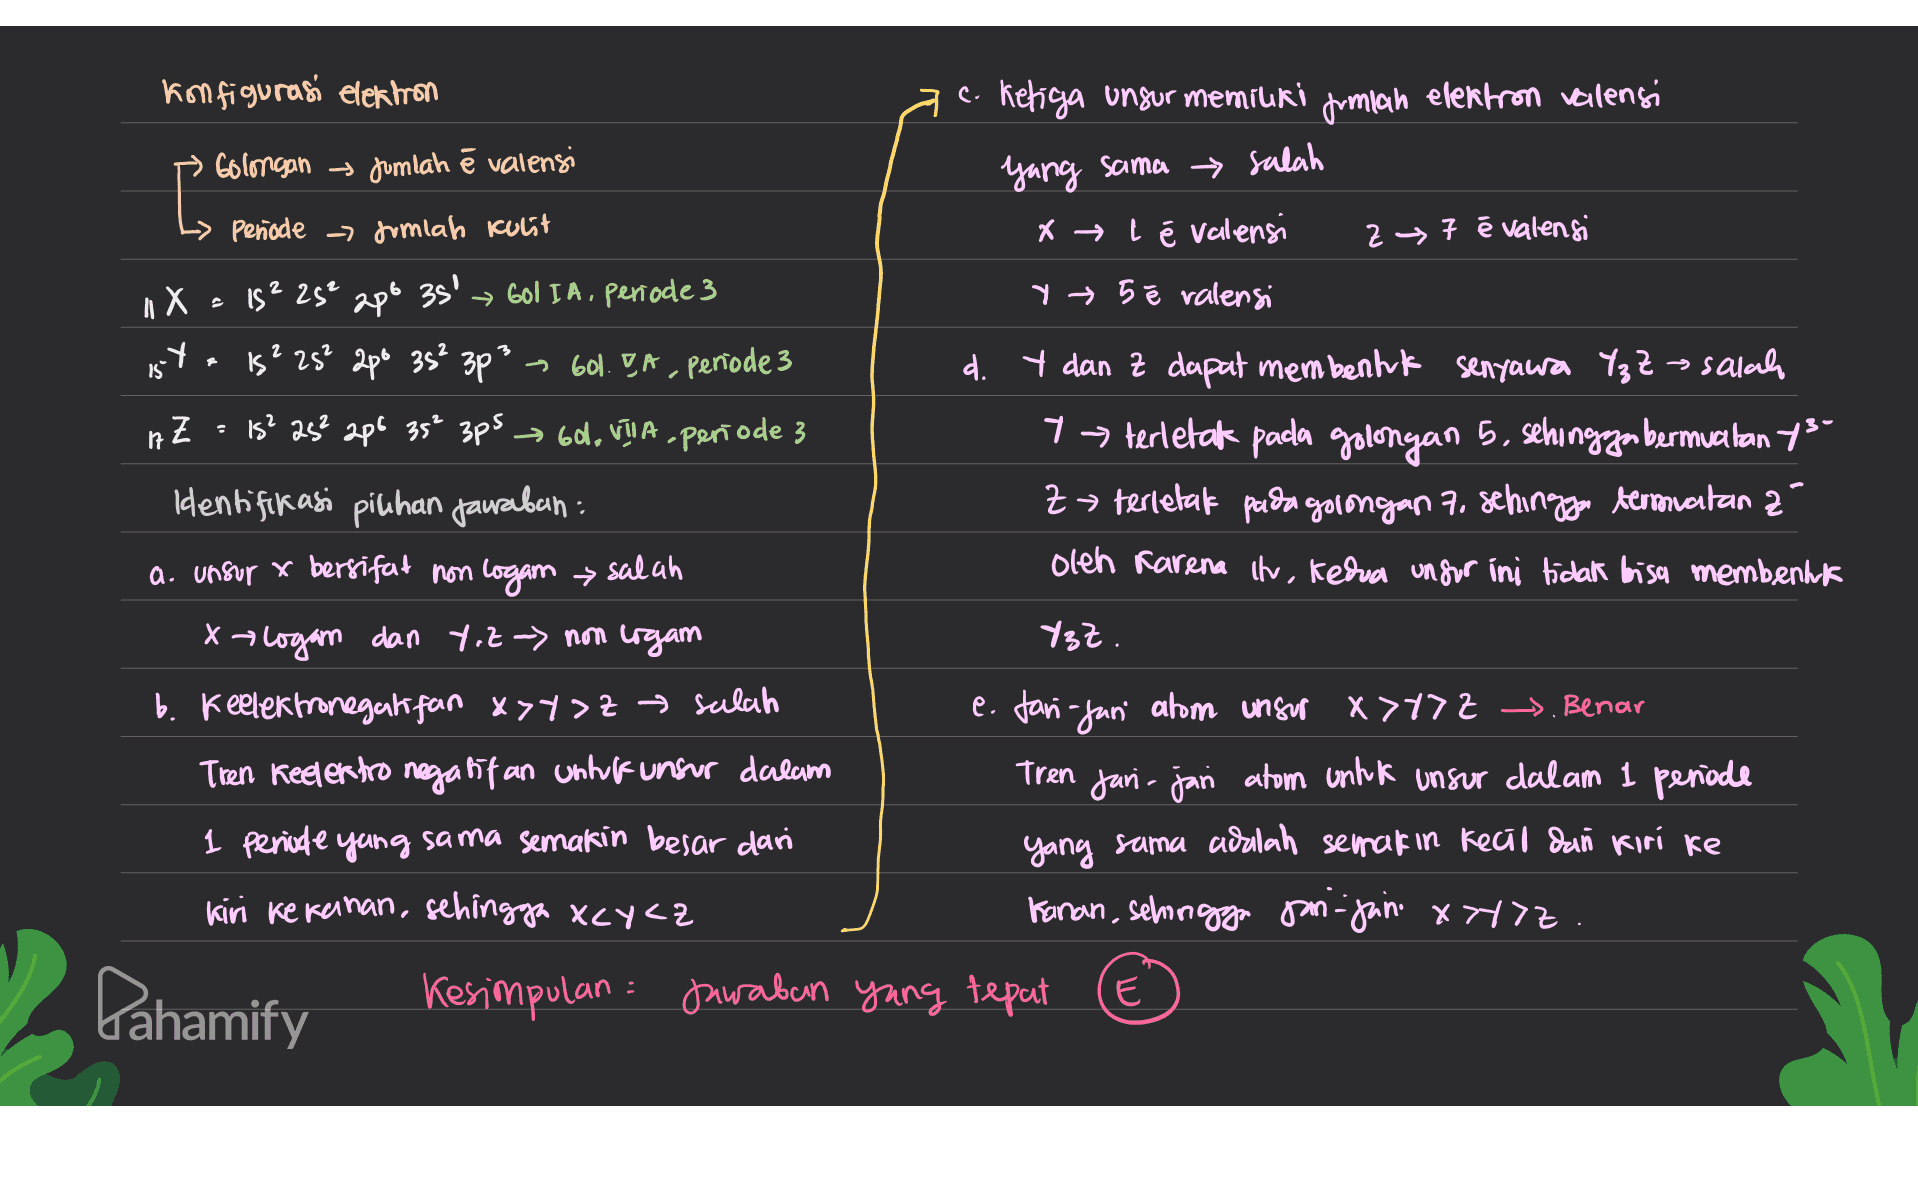 Konfigurasi elektron
→ Golongan → Jumlah ē valensi
→ Periode → Jumlah kulit
₁₁X = 1s² 2s² 2p⁶ 3s¹ → Gol IA, periode 3
₁₅Y = 1s² 2s² 2p⁶ 3s² 3p³ → Gol. VA, periode 3
₁₇Z = 1s² 2s² 2p⁶ 3s² 3p⁵ → Gol. VIIA, periode 3
Identifikasi pilihan jawaban :
a. unsur x bersifat non logam → salah
X → logam dan Y, Z → non logam
b. Keelektronegatifan X > Y > Z → salah
Tren keelektronegatifan untuk unsur dalam
1 periode yang sama semakin besar dari
kiri ke kanan, sehingga X < Y < Z
c. Ketiga unsur memiliki jumlah elektron valensi
yang sama → salah
X → 1 ē valensi Z → 7 ē valensi
Y → 5 ē valensi
d. Y dan Z dapat membentuk senyawa Y₃Z → salah
Y → terletak pada golongan 5, sehingga bermuatan Y³⁻
Z → terletak pada golongan 7, sehingga bermuatan Z⁻
Oleh karena itu, kedua unsur ini tidak bisa membentuk
Y₃Z.
e. Jari-jari atom unsur X > Y > Z → Benar
Tren jari-jari atom untuk unsur dalam 1 periode
yang sama adalah semakin kecil dari kiri ke
kanan, sehingga jari-jari X > Y > Z.
Kesimpulan : Jawaban yang tepat E
Pahamify